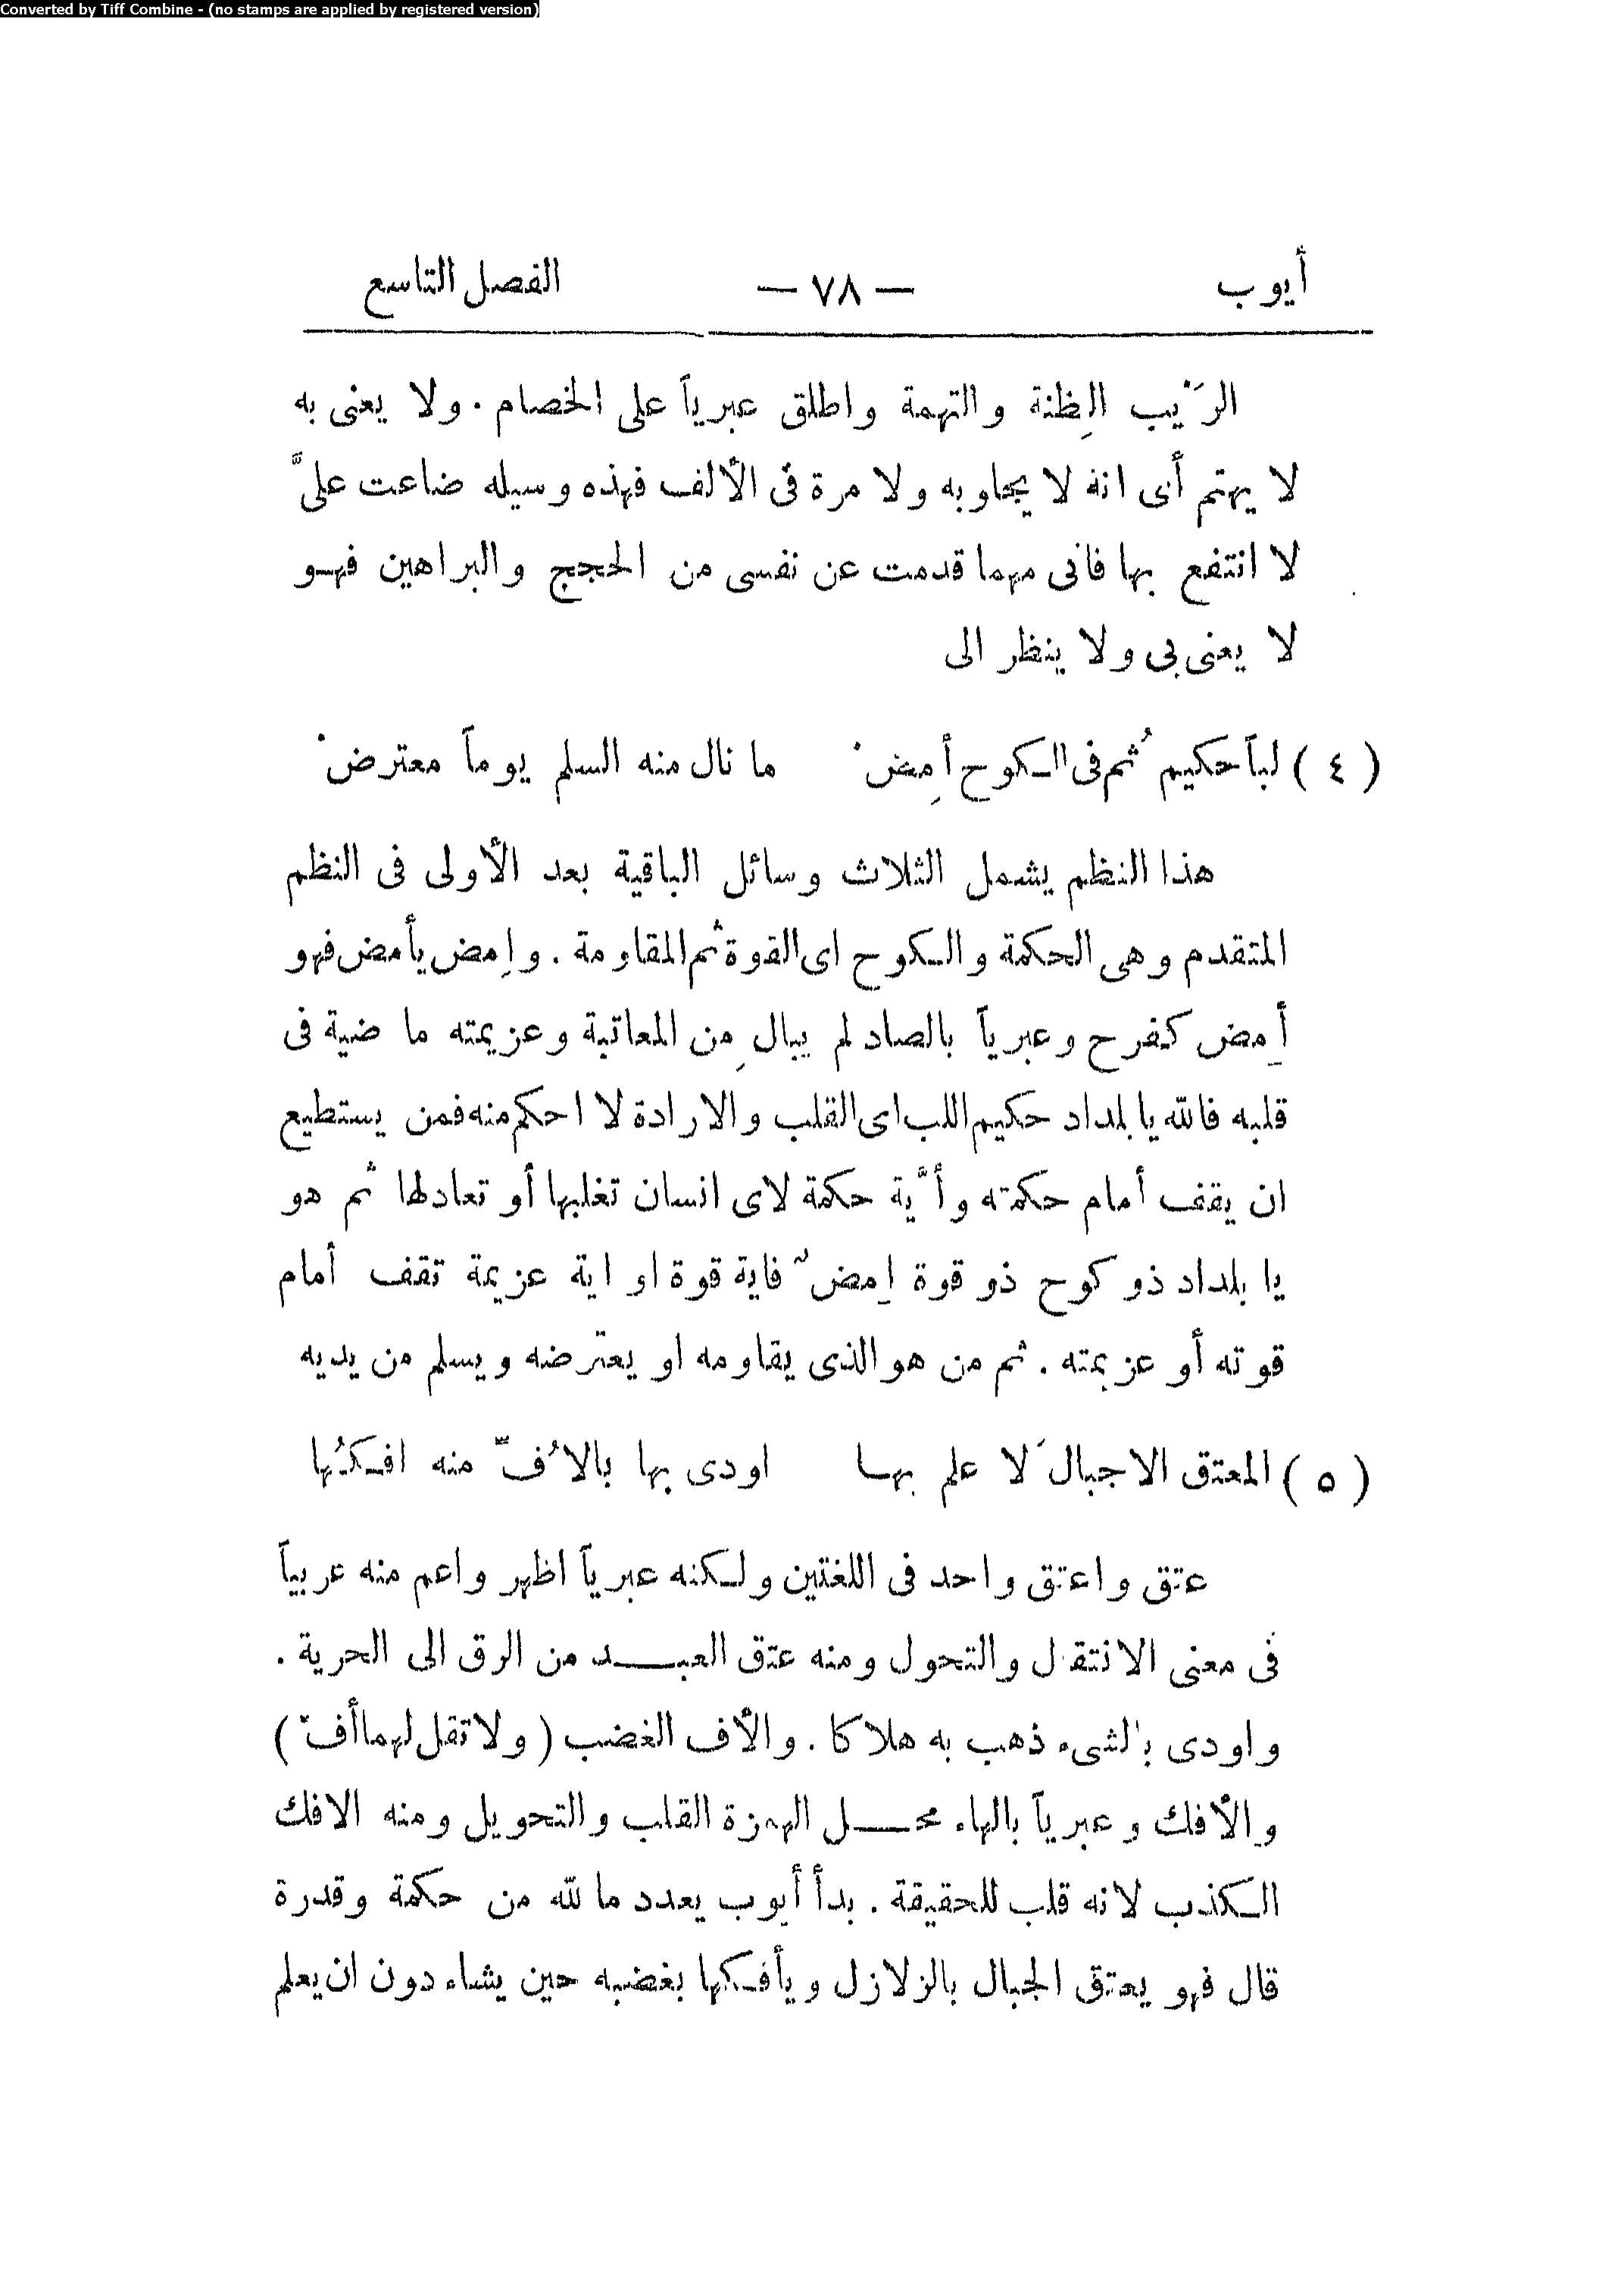 Converted by Tiff Combine - (no stamps are applied by registered version)
أيوب — ٧٨ — الفصل التاسع
الرَيْب الظِنة والتهمة واطلق عبرياً على الخصام . ولا يعنى به
لا يهتم أى انه لا يجاوبه ولا مرة فى الألف فهذه وسيله ضاعت علىَّ
لا انتفع بها فانى مهما قدمت عن نفسى من الحجج والبراهين فهو
لا يعنى بى ولا ينظر الى
( ٤ ) لباً حكيم ُثم فى الكوح أمِضْ ما نال منه السلم يوماً معترضْ
هذا النظم يشمل الثلاث وسائل الباقية بعد الأولى فى النظم
المتقدم وهى الحكمة والكوح اى القوة ثم المقاومة . وامِض يأمض فهو
أمِض كفرح وعبرياً بالصاد لم يبالِ من المعاتبة وعزيمته ما ضية فى
قلبه فالله يا بلداد حكيم اللب اى القلب والارادة لا احكم منه فمن يستطيع
ان يقف أمام حكمته وأيَّة حكمة لاى انسان تغلبها أو تعادلها ثم هو
يا بلداد ذو كوح ذو قوة امِضٌ فاية قوة او اية عزيمة تقف أمام
قوته أو عزيمته . ثم من هو الذى يقاومه او يعترضه ويسلم من يديه
( ٥ ) المعتق الاجبالَ لا علم بها اودى بها بالاُفّ منه افكُها
عتق واعتق واحد فى اللغتين ولكنه عبرياً اظهر واعم منه عربياً
فى معنى الانتقال والتحول ومنه عتق العبد من الرق الى الحرية .
واودى بالشىء ذهب به هلاكا . والأف الغضب ( ولا تقل لهما أفّ )
والأفك وعبرياً بالهاء محل الهمزة القلب والتحويل ومنه الافك
الكذب لانه قلب للحقيقة . بدأ أيوب يعدد ما لله من حكمة وقدرة
قال فهو يعتق الجبال بالزلازل ويأفكها بغضبه حين يشاء دون ان يعلم